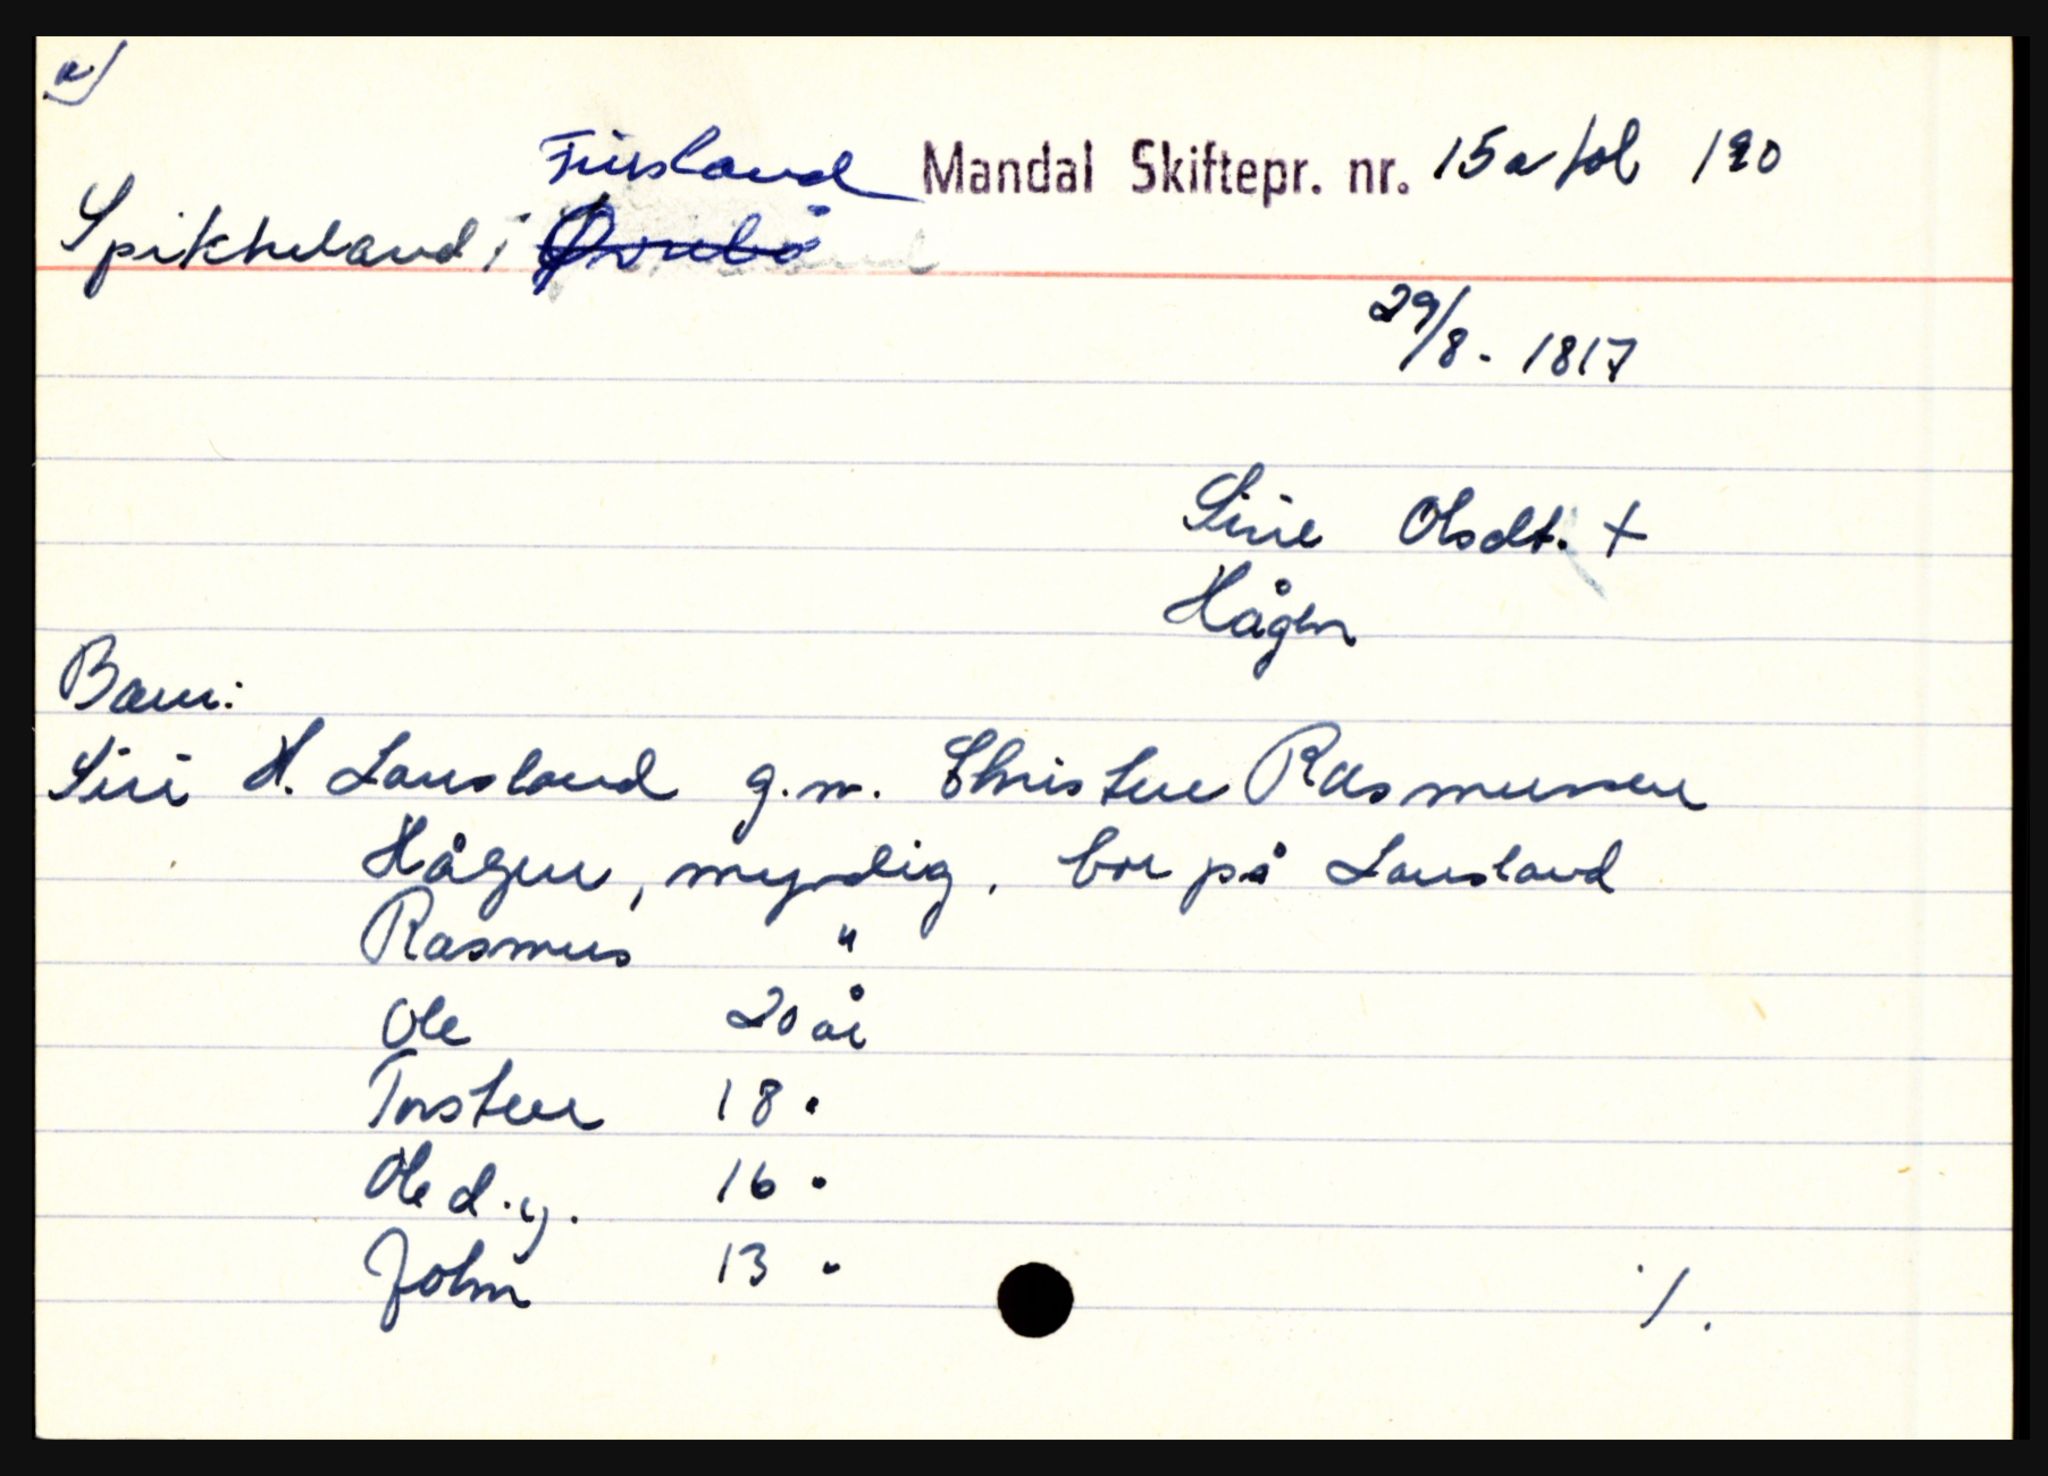 a)
Finsland Mandal Skiftepr. nr. 15a fol 190
Spikkeland i Øvrebø
29/8 - 1817
Sirie Olsdt. +
Hågen
Barn:
Siri H. Lausland g.m. Christen Rasmussen
Hågen, myndig, bor på Lausland
Rasmus "
Ole 20 år
Torsten 18 "
Ole d.y. 16 "
John 13 "
./.